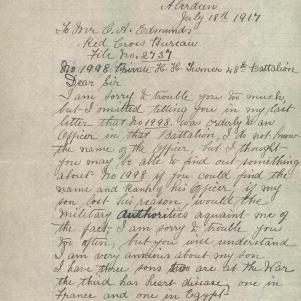 Aberdeen
July 18th 1917
To Mr C. A. Edmunds
Red Cross Bureau
File No. 2737
No 1998 Private H. H. Turner 48th Battalion
Dear Sir
I am sorry to trouble you so much,
but I omitted telling you in my last
letter that No 1998. was orderly to an
Officer in that Battalion, I do not know
the name of the Officer, but I thought
you may be able to find out something
about No 1998 if you could find the
name and Rank of his Officer, if my
son lost his reason, would the
Military Authorities aquaint me of
the fact, I am sorry to trouble you
so often, but you will understand
I am very anxious about my son
I have three sons two are at the War
the third has heart disease, one in
France and one in Egypt.